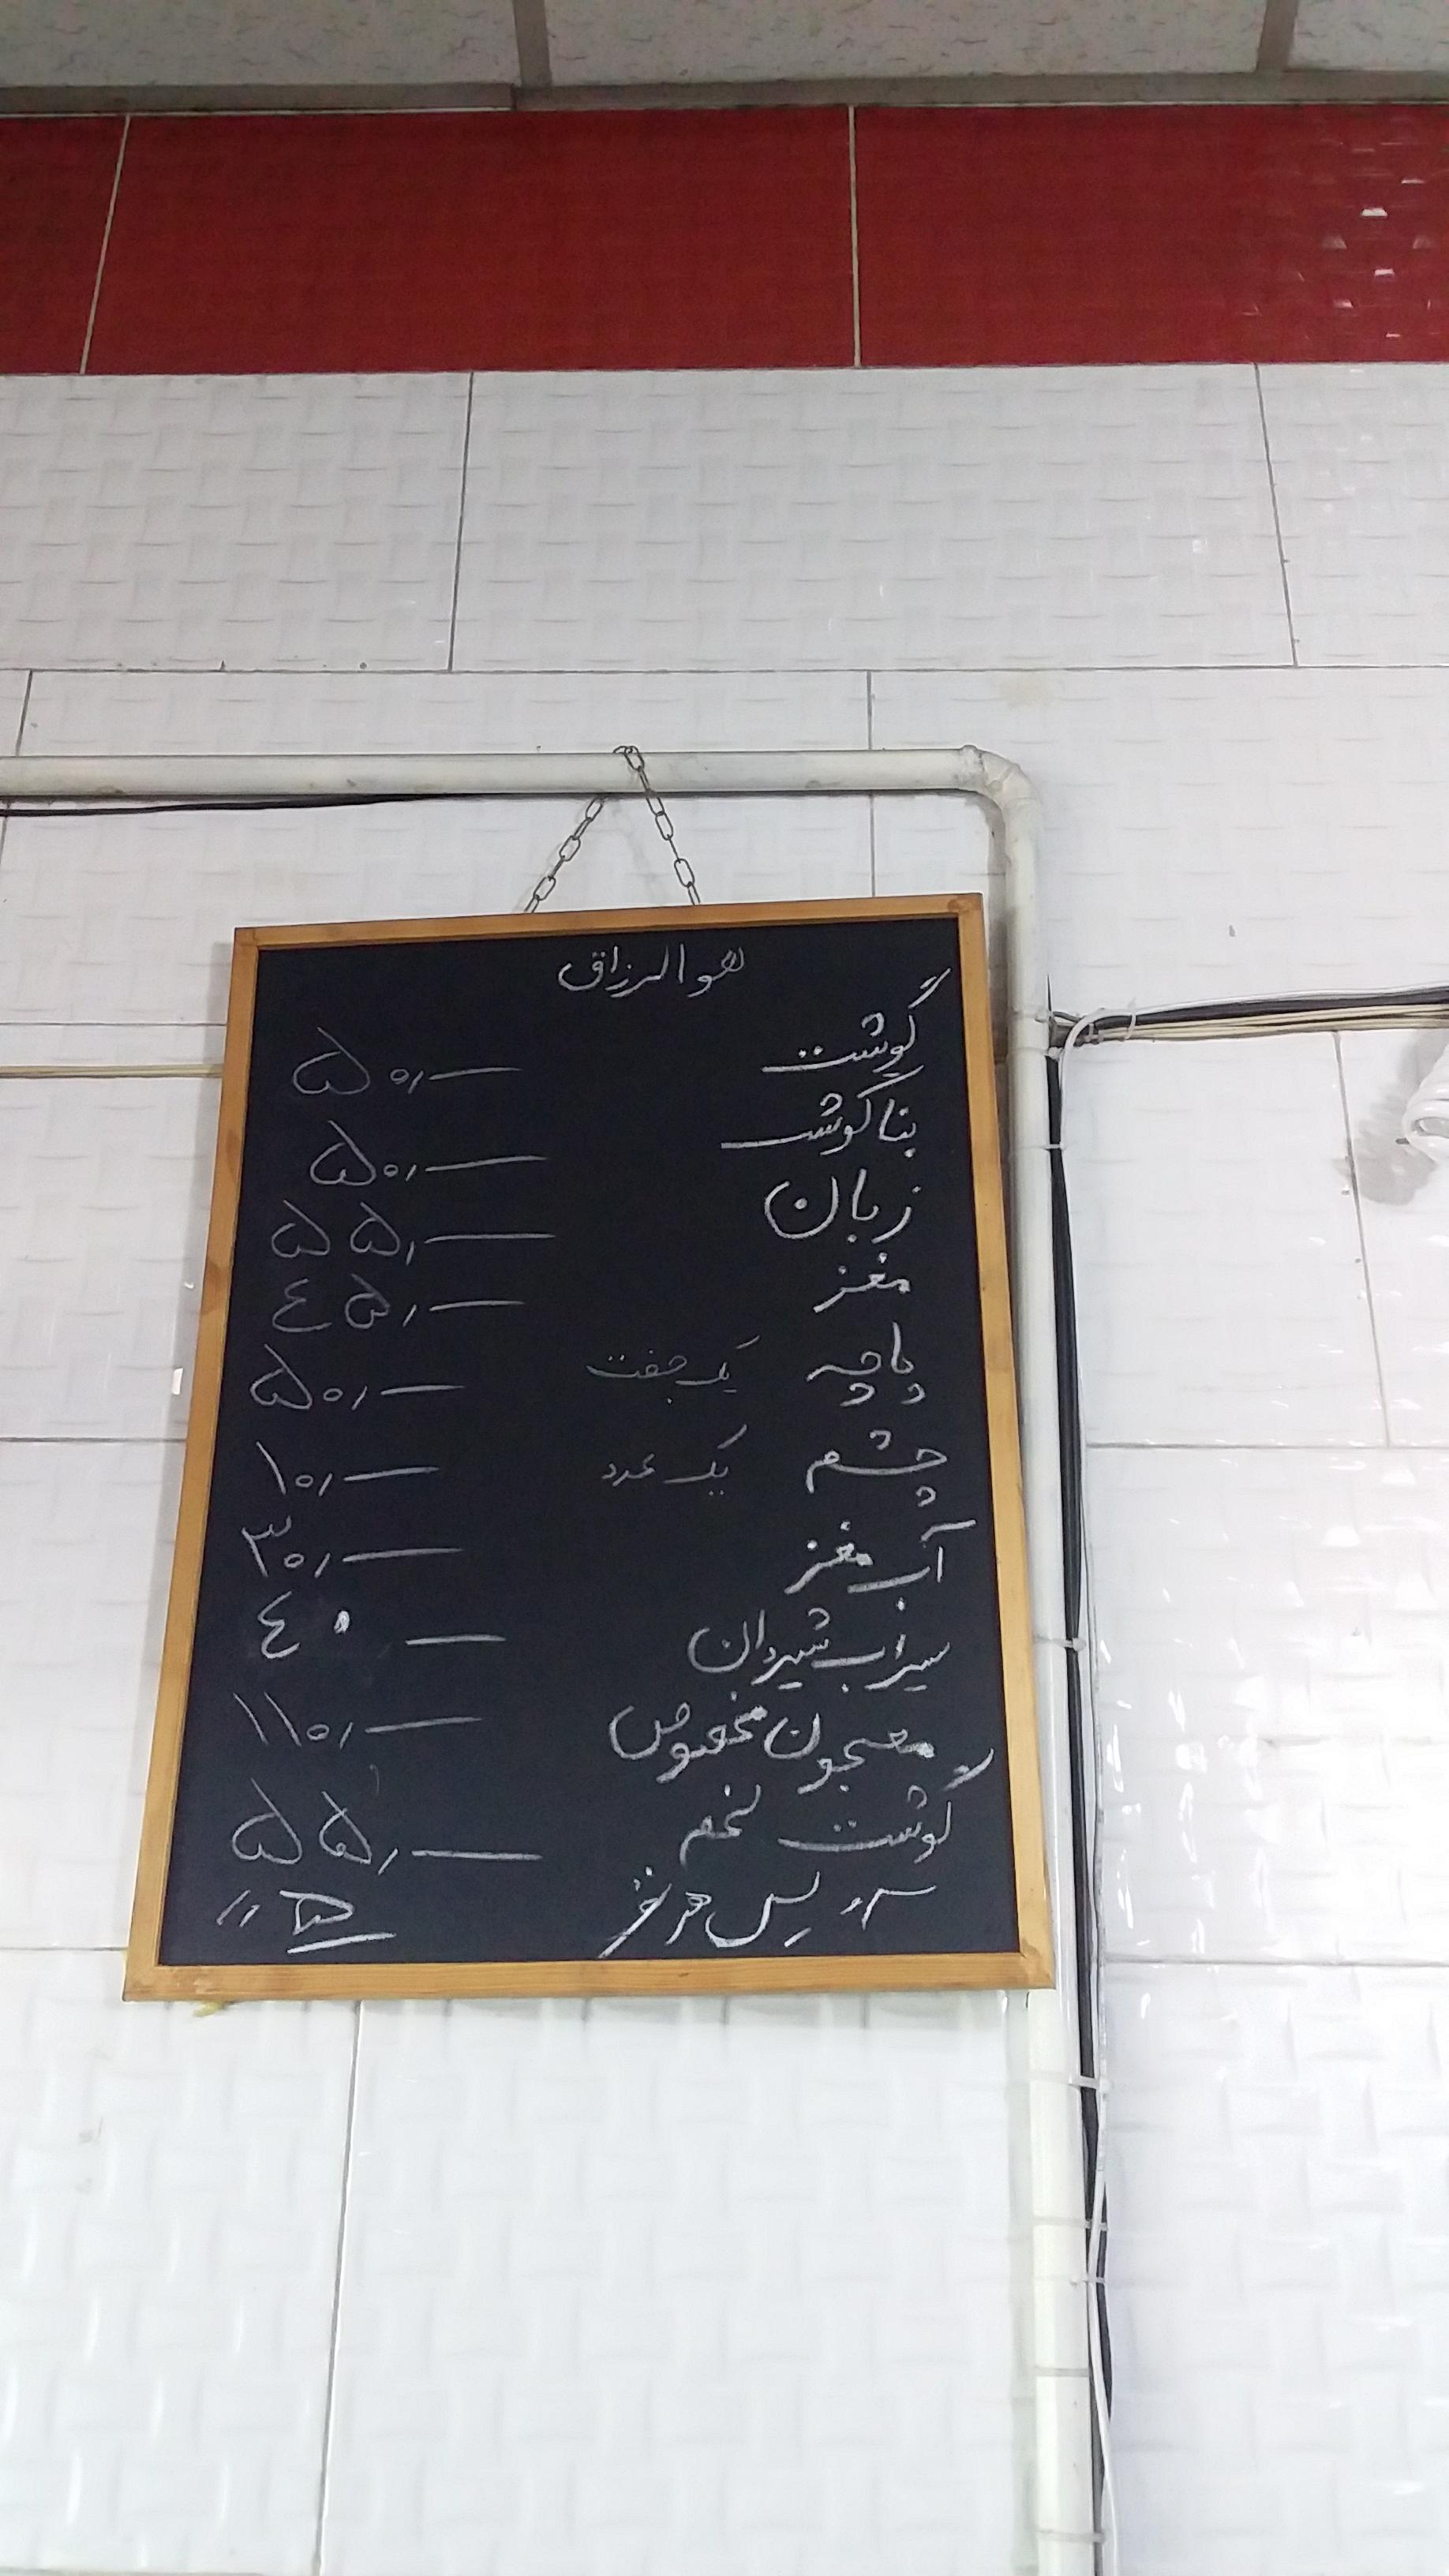 هو الرزاق
گوشت ۵۰,—
بناگوش ۵۰,—
زبان ۵۵,—
مغز ٤۵,—
پاچه یک جفت ۵۰,—
چشم یک عدد ۱۰,—
آب مغز ۳۰,—
سیراب شیردان ٤۰ —
معجون مخصوص ۱۱۰,—
گوشت لخم ۵۵,—
سرویس هر نفر ۵